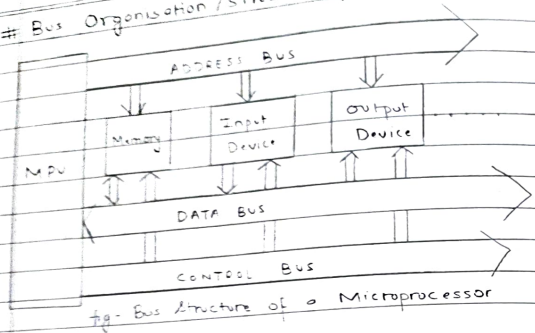 # Bus Organisation /
ADDRESS BUS
MPU
Memory
Input
Device
Output
Device
DATA BUS
CONTROL BUS
fig- Bus Structure of a Microprocessor